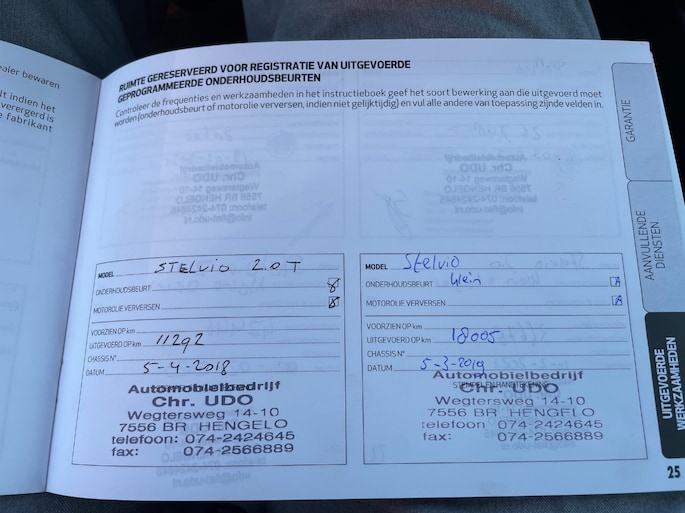 ealer bewaren
dt indien het
verergerd is
e fabrikant
RUIMTE GERESERVEERD VOOR REGISTRATIE VAN UITGEVOERDE
GEPROGRAMMEERDE ONDERHOUDSBEURTEN
Controleer de frequenties en werkzaamheden in het instructieboek geef het soort bewerking aan die uitgevoerd moet
worden (onderhoudsbeurt of motorolie verversen, indien niet gelijktijdig) en vul alle andere van toepassing zijnde velden in.
MODEL STELVIO 2.0 T
ONDERHOUDSBEURT
MOTOROLIE VERVERSEN
VOORZIEN OP km
UITGEVOERD OP km 11292
CHASSIS N°
DATUM 5-4-2018
Automobielbedrijf
Chr. UDO
Wegtersweg 14-10
7556 BR HENGELO
telefoon: 074-2424645
fax: 074-2566889
MODEL Stelvio
ONDERHOUDSBEURT klein
MOTOROLIE VERVERSEN
VOORZIEN OP km
UITGEVOERD OP km 18005
CHASSIS N°
DATUM 5-3-2019
Automobielbedrijf
Chr. UDO
Wegtersweg 14-10
7556 BR HENGELO
telefoon: 074-2424645
fax: 074-2566889
GARANTIE
AANVULLENDE
DIENSTEN
UITGEVOERDE
WERKZAAMHEDEN
25